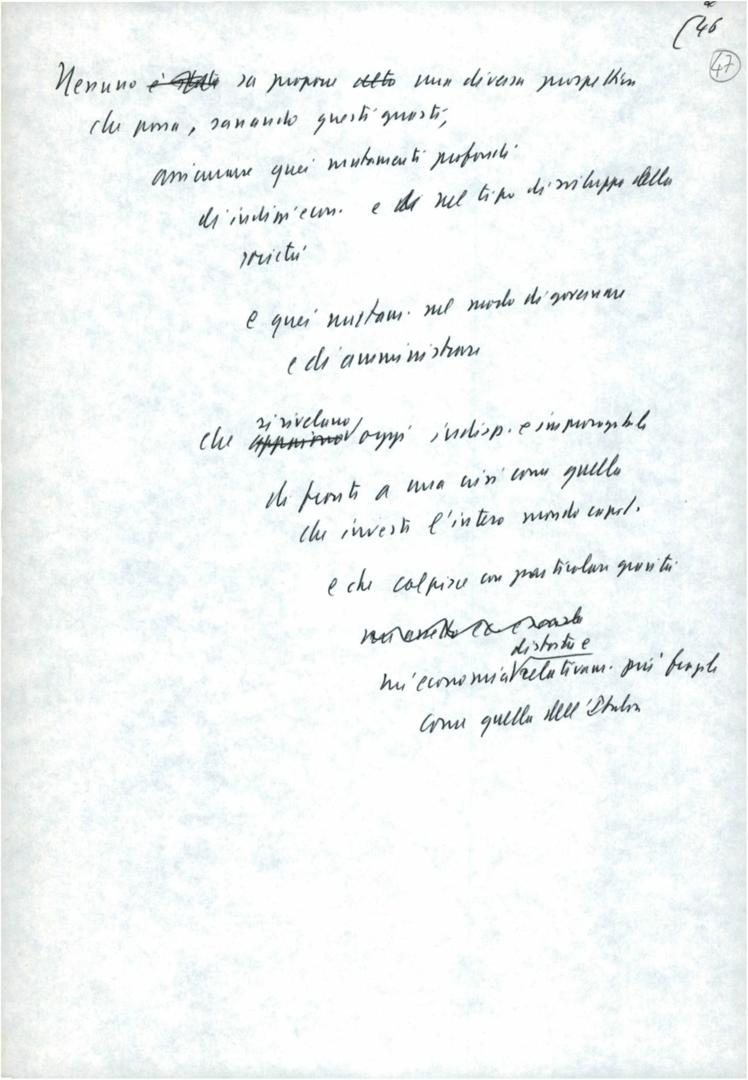 46
47
Nessuno è stato sa proporre altro una diversa prospettiva
che possa, sanando questi guasti,
assicurare quei mutamenti profondi
di indirizzi econ. e di nel tipo di sviluppo della
società
e quei mutam. nel modo di governare
e di amministrare
si rivelano
che appaiono oggi indisp. e improrogabili
di fronte a una crisi come quella
che investe l'intero mondo capit.
e che colpisce con particolare gravità
distorta e
un'economia relativam. più fragile
come quella dell'Italia